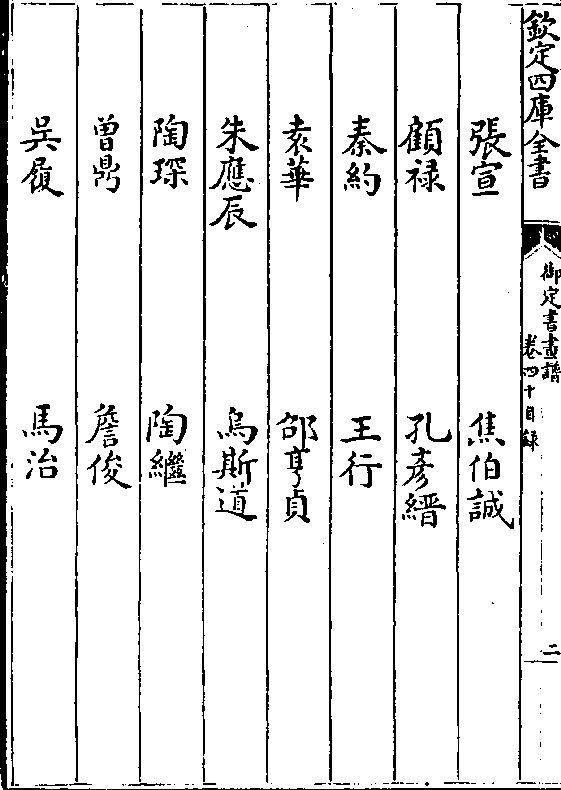 欽定四庫全書
御定書畫譜
卷四十目録
二
張宣 焦伯誠
顧禄 孔彥縉
秦約 王行
袁華 邵亨貞
朱應辰 烏斯道
陶琛 陶繼
曾鼎 詹俊
吳履 馬治